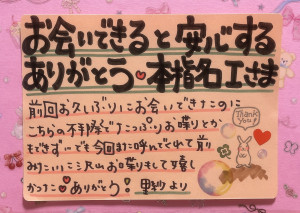 お会いできると安心する
ありがとう 本指名工さま
前回お久ぶりにお会いできたのに
こちらの不手際でたっぷりお喋りとか
までできずいでき今回また呼んでくれて前
みたいに沢山お喋りもして嬉し
かった ありがとう!
より
Thank
You!